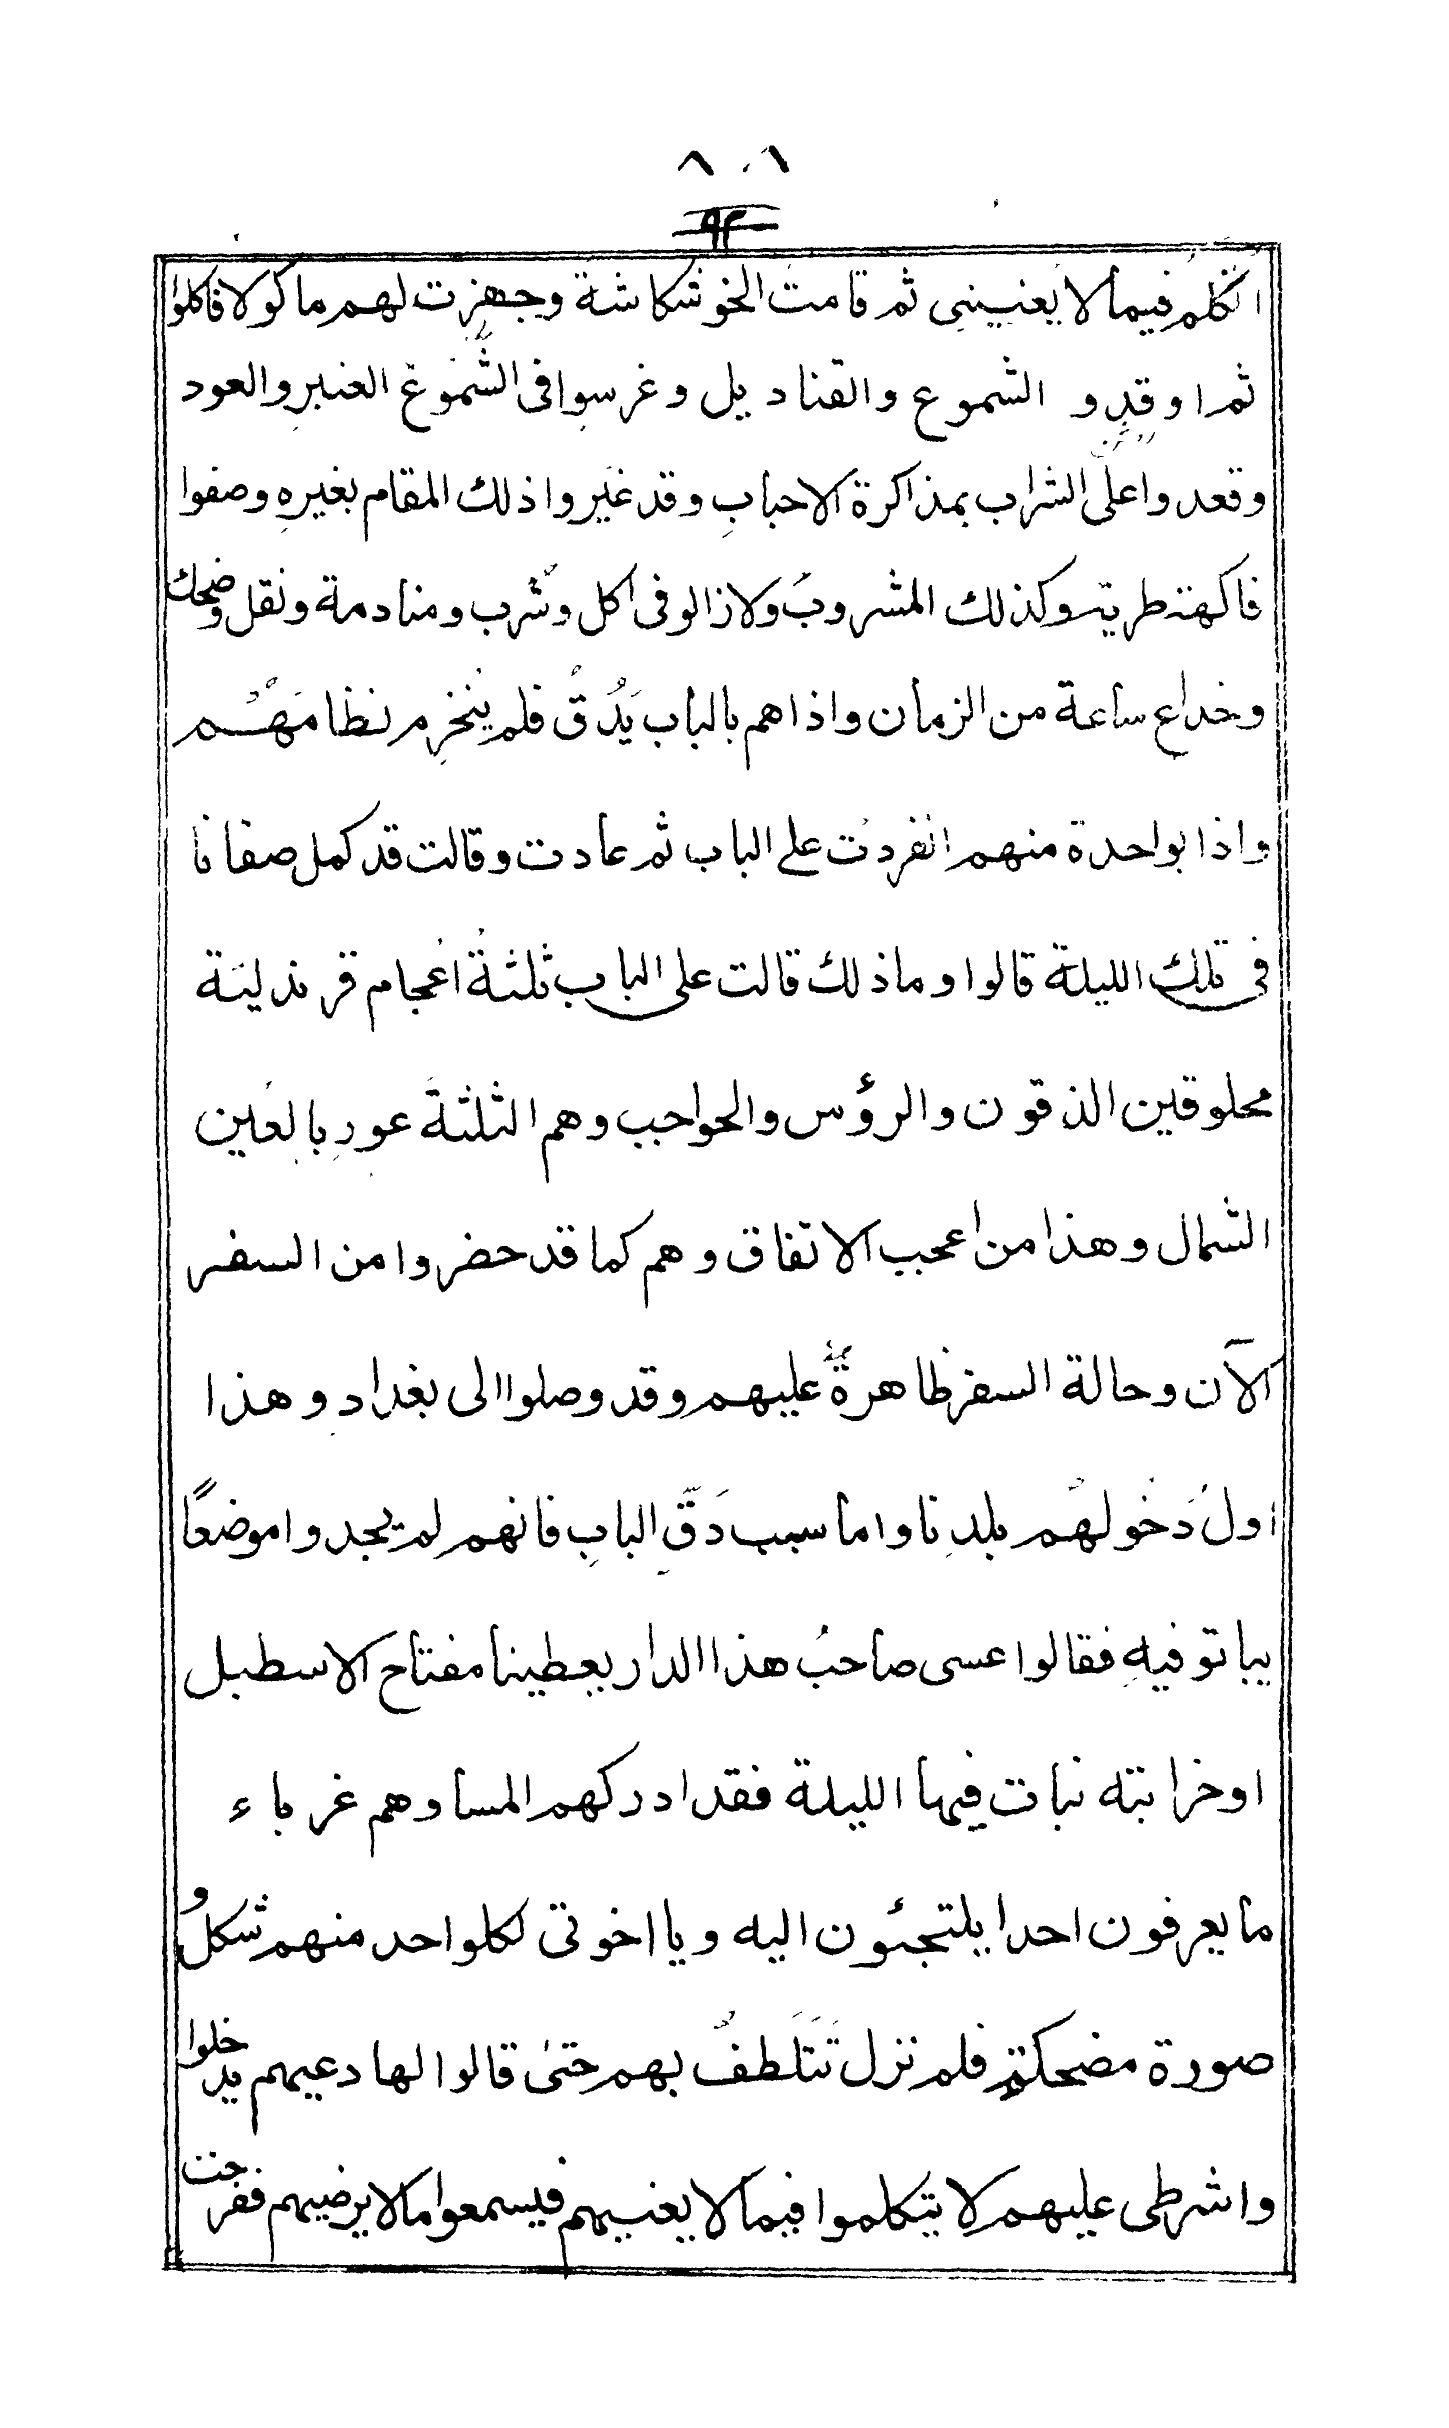 ٨٠١
٩٣
اتكلم فيما لا يعنيني ثم قامت الخوشكاشة وجهزت لهم ماكولا فاكلوا
ثم اوقدو الشموع والقناديل وغرسوا فى الشموع العنبر والعود
وقعدوا على الشراب بمذاكرة الاحباب وقد غيروا ذلك المقام بغيره وصفوا
فاكهة طرية وكذلك المشروب ولا زالو فى اكل وشرب ومنادمة ونقل وضحك
وخداع ساعة من الزمان واذا هم بالباب يَدُقّ فلم ينخرم نظامَهُم
واذا بواحدة منهم انفردت على الباب ثم عادت وقالت قد كمل صفانا
فى تلك الليلة قالوا وما ذلك قالت على الباب ثلثةُ اعجام قرندلية
محلوقين الذقون والرؤس والحواجب وهم الثلثة عور بالعين
الشمال وهذا من اعجب الاتفاق وهم كما قد حضروا من السفر
الآن وحالة السفر ظاهرةٌ عليهم وقد وصلوا الى بغداد وهذا
اول دَخُولهُم بلدِنا واما سبب دَقّ البابِ فانهم لم يجدوا موضعًا
يباتو فيهِ فقالوا عسى صاحبُ هذا الدار يعطينا مفتاح الاسطبل
او خرابته نبات فيها الليلة فقد ادركهم المسا وهم غرباء
ما يعرفون احدا يلتجئون اليه ويا اخوتى لكلواحد منهم شكلٌ و
صورة مضحكة فلم تزل تَتَلَطفُ بهم حتىٰ قالوا لها دعيهم يدخلوا
واشرطى عليهم لا يتكلموا فيما لا يعنيهم فيسمعوا ما لا يرضيهم ففرحت